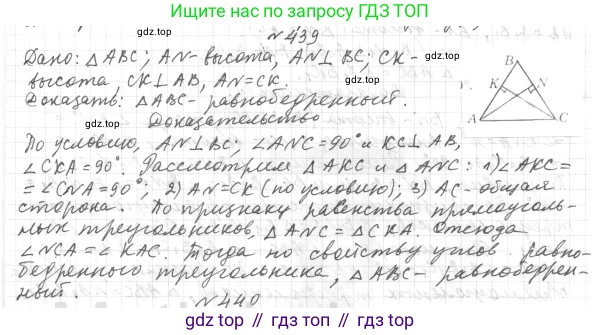 Ищите нас по запросу ГДЗ ТОП
gdz.top
№439
gdz.top
Дано: △ABC; AN- высота, AN⊥BC; CK-
высота, CK⊥AB, AN=CK.
Доказать: △ABC- равнобедренный.
Доказательство
B
K
N
A
C
По условию, AN⊥BC; ∠ANC=90° и KC⊥AB,
∠CKA=90°. Рассмотрим △AKC и △ANC: 1)∠AKC=
=∠CNA=90°; 2) AN=CK (по условию); 3) AC- общая
сторона. По признаку равенства прямоуголь-
мых треугольников, △ANC=△CKA. Отсюда
∠NCA=∠KAC. Тогда по свойству углов равно-
бедренного треугольника, △ABC- равнобедрен-
ный.
№440
gdz.top
gdz.top
gdz top // гдз топ // gdz top // гдз топ